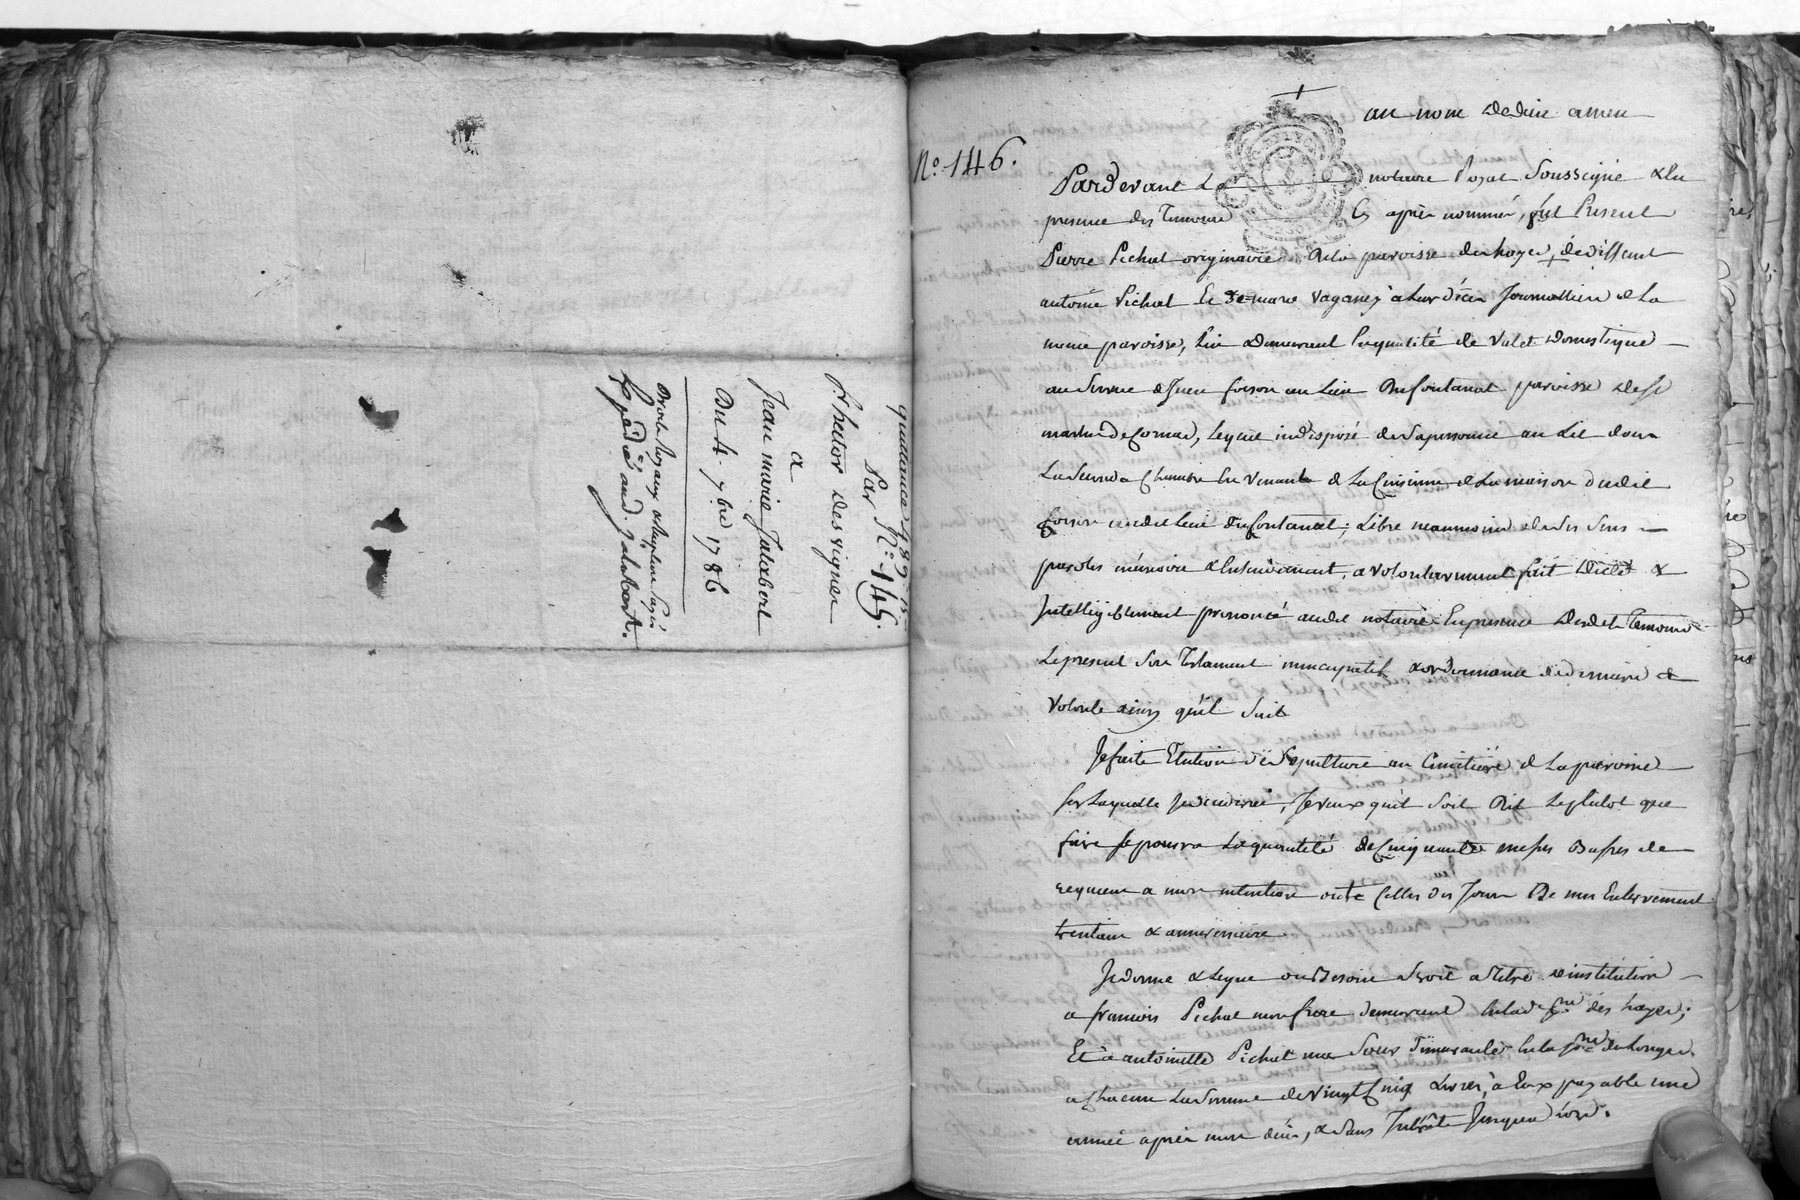 quittance 489 lt
Par N.º 145.
hector desvignes
a
Jean marie Jalabert
Du 4. 7bre 1786
Droits Royaux
Expédié aud. Jalabert.
N.º 146.
au nom de dieu amen
Pardevant Le notaire Royal Soussigné & En
presence des Temoins Cy après nommés, fut Present
Pierre Pichat originaire de la paroisse des hayes, de deffunt
antoine Pichat Et de marie Vaganey a Leur décès Journalliers de La
même paroisse, Lui demeurant En qualité de Valet Domestique
au Service de Jean foison au Lieu du fontanat paroisse de St
martin de Cornas, Lequel indisposé de sa personne au Lit dans
La Seconde Chambre En Venant de La Cuisine de La maison dudit
foison audit Lieu du fontanat; Libre neanmoins de Ses Sens
paroles mémoire & Entendement, a Volontairement fait dicté &
Intelligiblement prononcé audit notaire En presence Desdits temoins
Le present Son Testament nuncupatif & ordonnance de derniere
Volonté ainsy qu'il Suit
Je fais Election de Sepulture au Cimetière de La paroisse
Sur Laquelle Je decederai, Je veux qu'il Soit Dit Le plutot que
faire Se pourra La quantité de Cinquante messes Basses de
requiem a mon intention outre Celles des Jours De mon Enterrement
trentain & anniversaire
Je donne & Legue ou Besoin Seroit a titre d'institution
a francois Pichat mon frere demeurant En lad. psse des hayes;
Et a antoinette Pichat ma Soeur demeurante En la psse de Longes
a Chacun La Somme de Vingt Cinq Livres, a Eux payable une
année après mon décès, & Sans Intérêts Jusques alors.